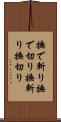 撫で斬り撫
で切り撫斬
り撫切り